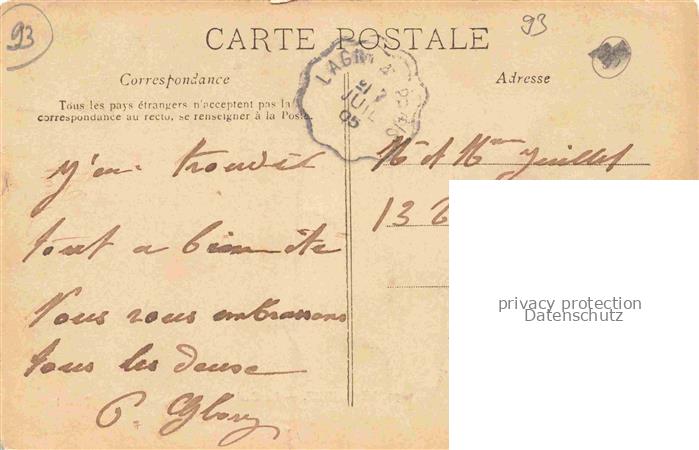 93
93
CARTE POSTALE
Correspondance
Adresse
Tous les pays étrangers n'acceptent pas la
correspondance au recto, se renseigner à la Poste.
LAGNY A PARIS
JUIL
05
tout a bientôt
Nous vous embrassons
tous les deux
Mr et Mme Juillet
13
privacy protection
Datenschutz